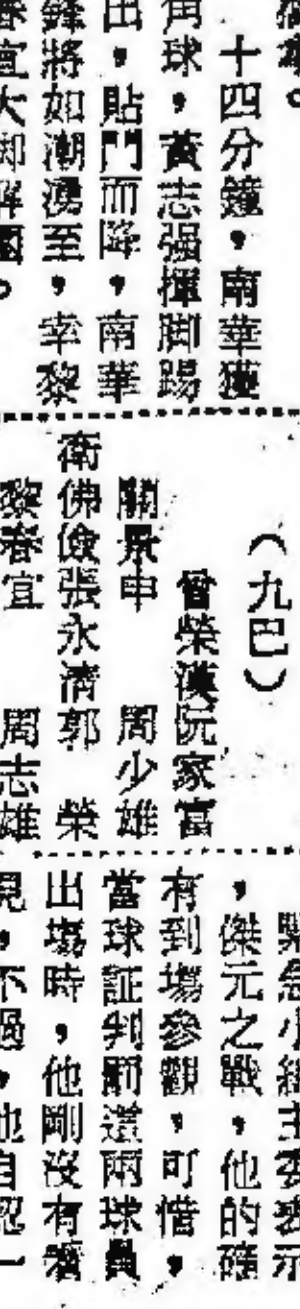 十四分鐘，南華獲
角球，黃志强揮脚踢
出，貼門而降，南華
鋒將如潮湧至，幸黎
春宜大脚解圍。
（九巴）
曾榮漢阮家富
關景申　周少雄
衛佛儉張永濟郭　榮
黎春宜　周志雄
緊急小組主委表示
，傑元之戰，他的確
有到塲參觀，可惜，
當球証判罰這兩球員
出塲時，他剛沒有看
見，不過，他自認一